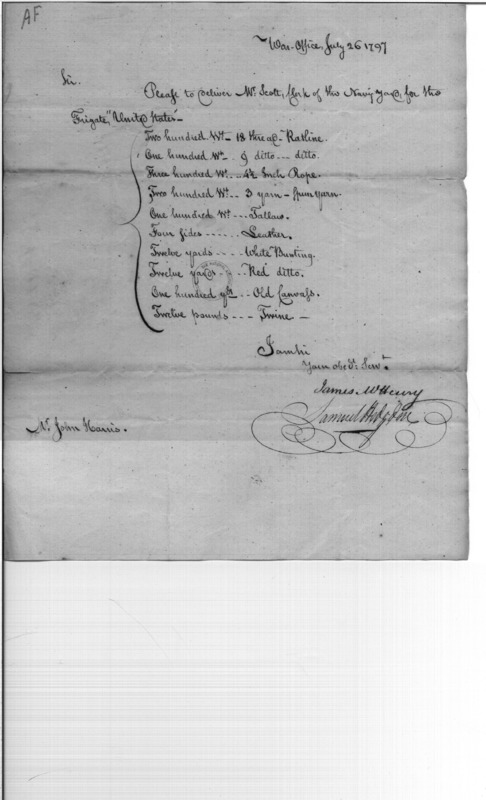 AF
War-Office, July 26 1797
Sir.
Please to deliver Mr. Scott, Clerk of the Navy Yard, for the
Frigate, "United States"
Two hundred Wt. 18 thread Ratline.
One hundred Wt. 9 ditto --- ditto.
Three hundred Wt. 4½ Inch Rope.
Two hundred Wt. 3 yarn - spun yarn.
One hundred Wt --- Tallow.
Four sides ------ Leather.
Twelve yards ---- White Bunting.
Twelve yards ---- Red ditto.
One hundred yds -- Old Canvass.
Twelve pounds --- Twine —
I am Sir
Your obedt. Servt.
James McHenry
Samuel Hodgdon
Mr. John Harris.